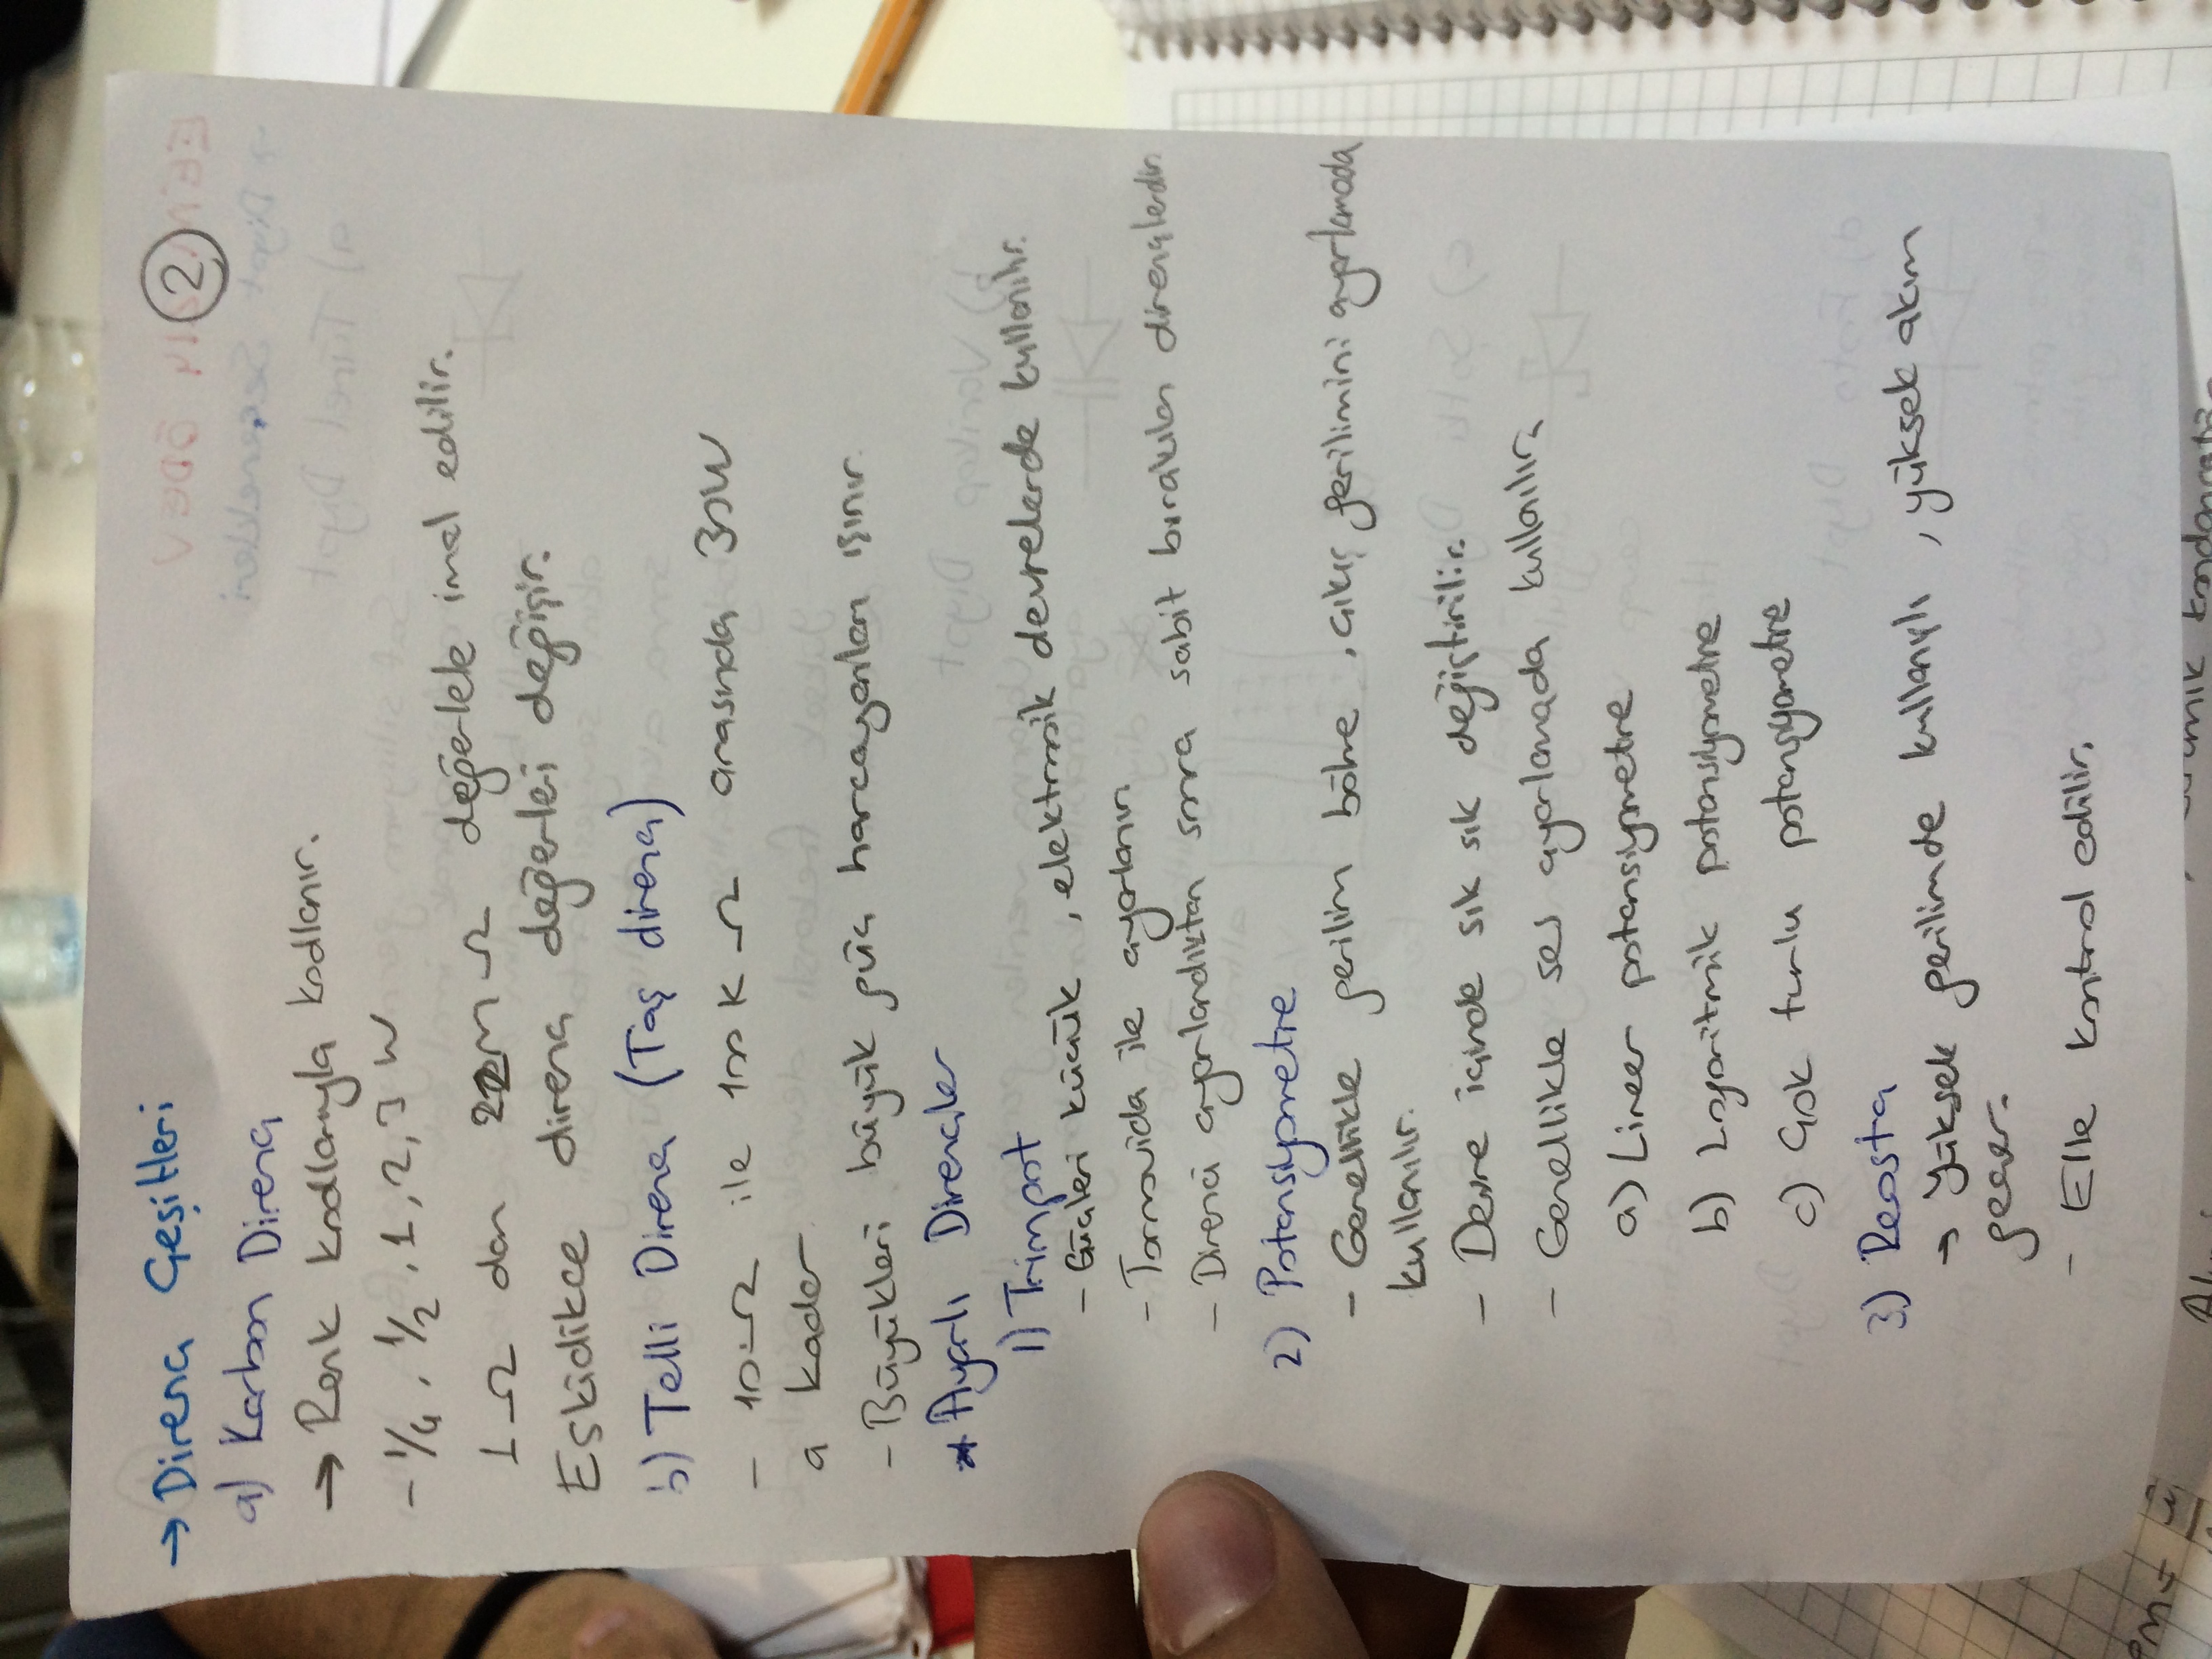 ②
→ Direnç Çeşitleri
a) Karbon Direnç
→ Renk kodlarıyla kodlanır.
- 1/4, 1/2, 1, 2, 3 W
1 Ω dan 22M Ω değerlele imal edilir.
Eskidikce direnç değerleri değişir.
b) Telli Direnç (Taş direnç)
- 10 Ω ile 100 K Ω arasında 30W
a kadar
- Büyükleri büyük güç harcayanları ısınır.
* Ayarlı Dirençler
1) Trimpot
- Güçleri küçük, elektronik devrelerde kullanılır.
- Tornavida ile ayarlanır
- Direnci ayarlandıktan sonra sabit bırakılan dirençlerdir
2) Potansiyometre
- Genellikle gerilim bölme, çıkış gerilimini ayarlamada
kullanılır.
- Devre içinde sık sık değiştirilir.
- Genellikle ses ayarlamada kullanılır.
a) Lineer potansiyometre
b) Logaritmik potansiyometre
c) Çok turlu potansiyometre
3) Reosta
→ Yüksek gerilimde kullanışlı, yüksek akım
geçer.
- Elle kontrol edilir.